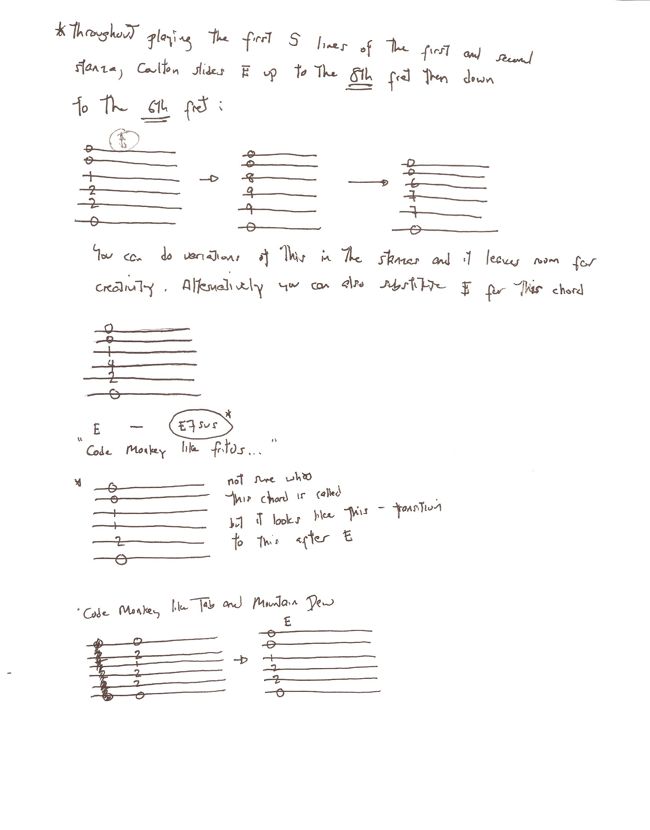 * Throughout playing the first 5 lines of the first and second
stanza, Coulton slides E up to the 8th fret then down
to the 6th fret :
E
0 0 0
0 0 0
1 8 6
2 9 7
2 9 7
0 0 0
You can do variations of this in the stanzas and it leaves room for
creativity. Alternatively you can also substitute E for this chord
0
0
1
4
2
0
E — E7sus *
"Code Monkey like fritos... "
* not sure what
this chord is called
but it looks like this - transition
to this after E
0
0
1
1
2
0
"Code Monkey like Tab and Mountain Dew
E
0 0
2 0
1 1
2 2
2 2
0 0